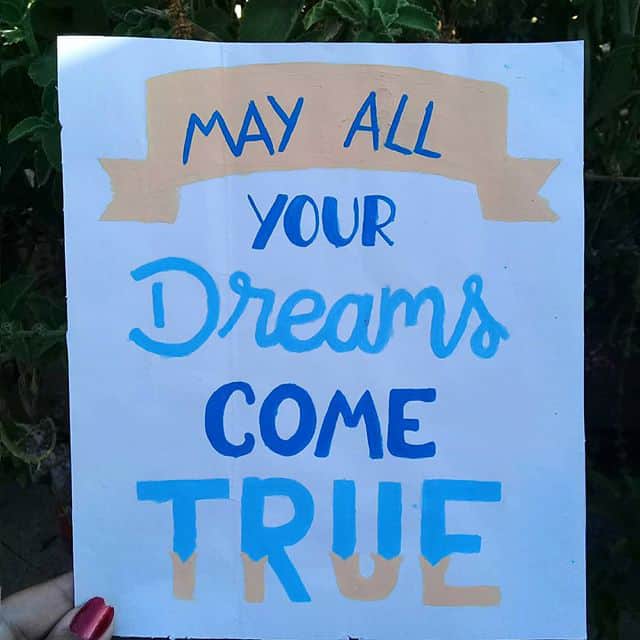 MAY ALL
YOUR
Dreams
COME
TRUE